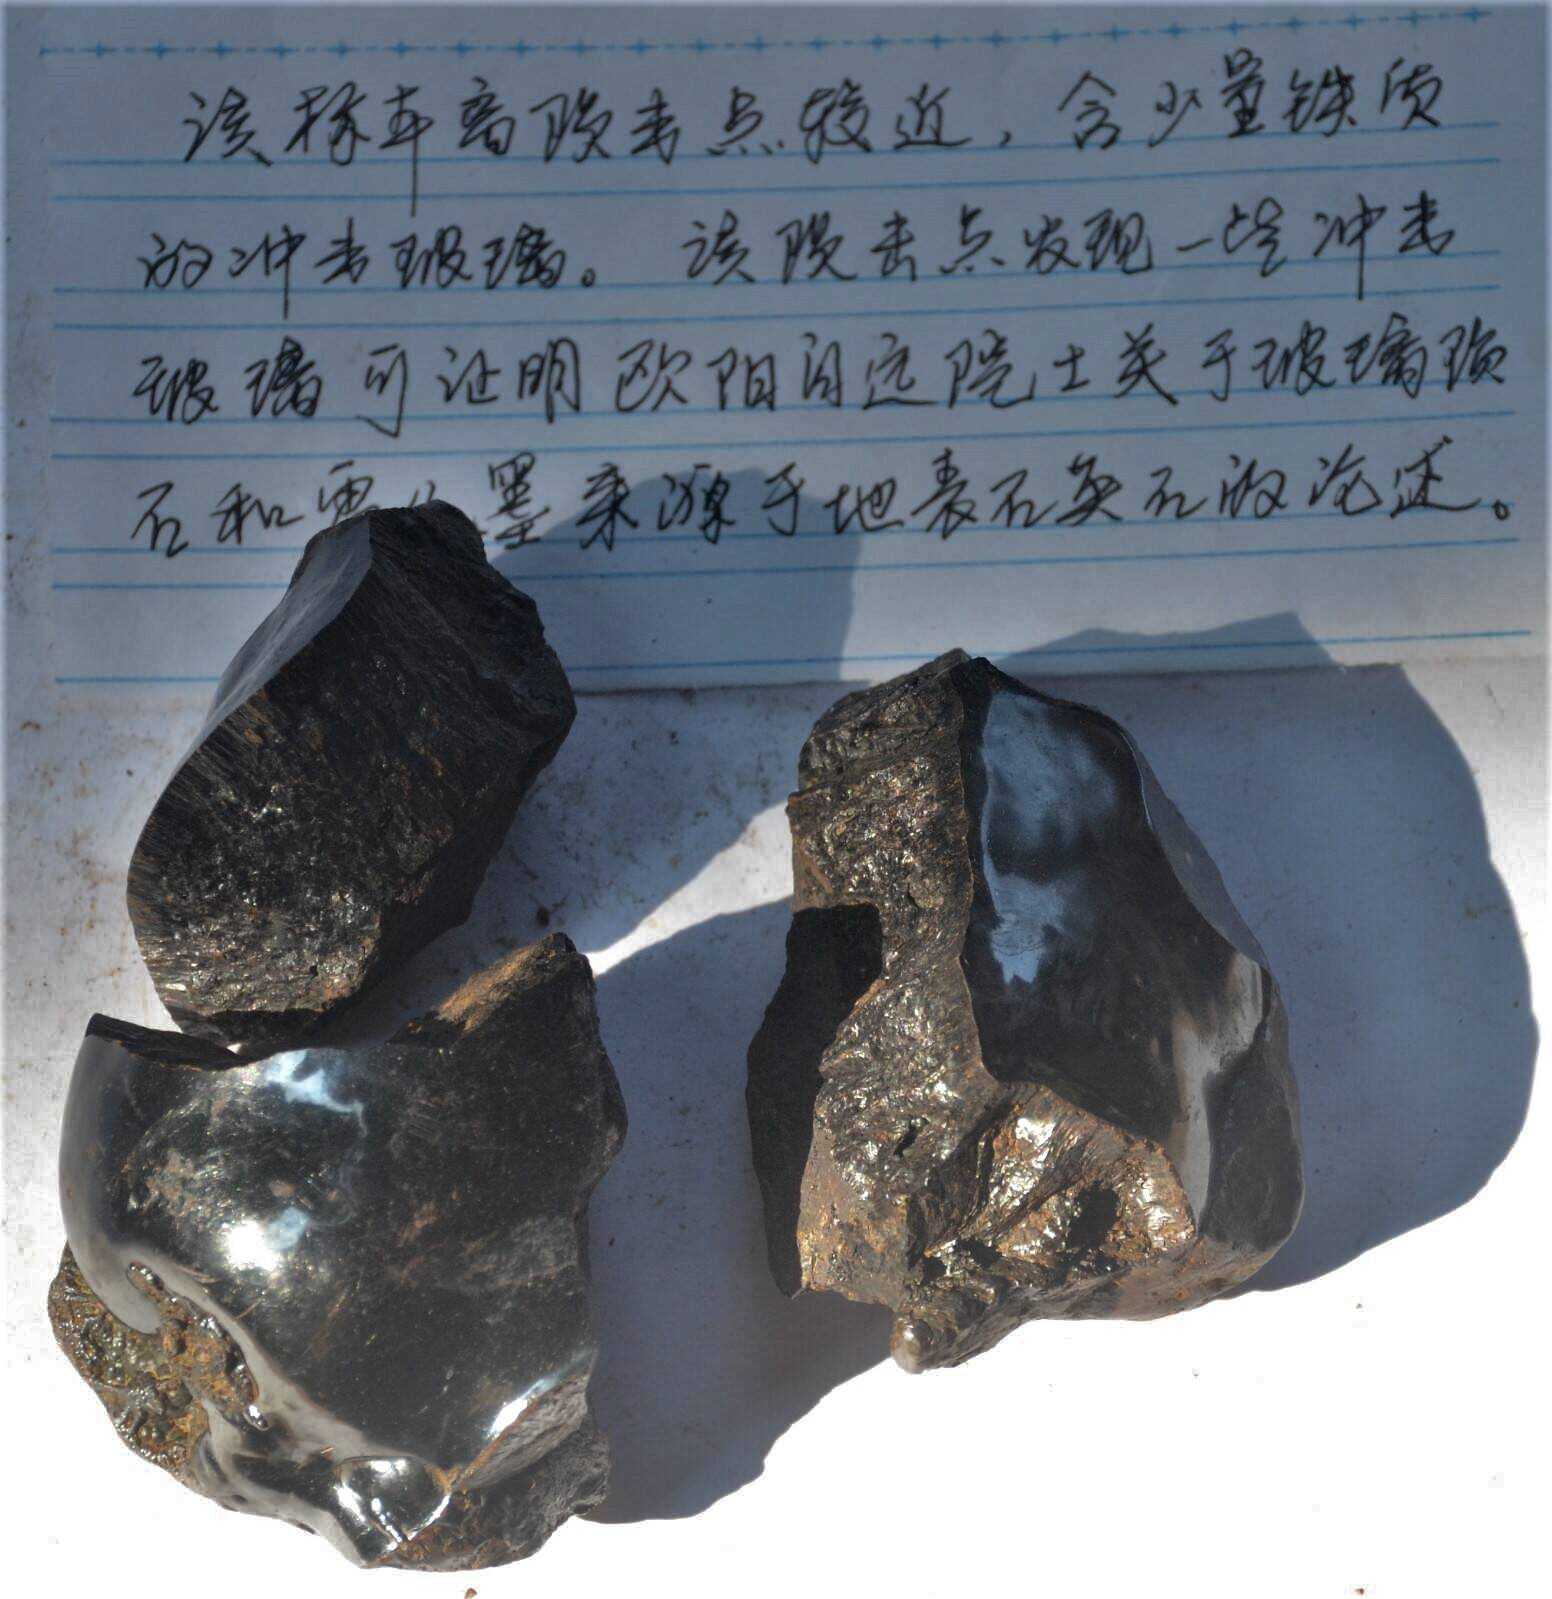 该标本离陨击点较近，含少量铁质
的冲击玻璃。该陨击点发现一些冲击
玻璃可证明欧阳自远院士关于玻璃陨
石和雷公墨来源于地表石英石的论述。